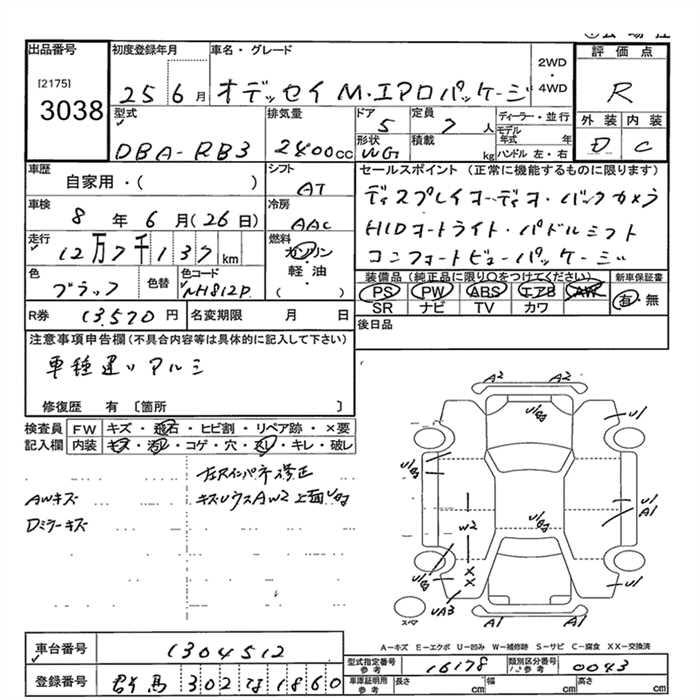 出品番号
[2175]
3038
初度登録年月
25 6 月
車名・グレード
オデッセイ M・エアロパッケージ
2WD
・
4WD
評価点
R
外装 内装
D C
型式
DBA-RB3
排気量
2400cc
ドア
5
形状
WG
定員
7 人
積載
kg
ディーラー・並行
モデル年式 年
ハンドル 左・右
車歴
自家用・( )
シフト
AT
車検
8 年 6 月 (26 日)
冷房
AAC
走行
12万7千137 km
燃料
ガソリン
・
軽・油
( )
色
ブラック
色替
色コード
NH812P
セールスポイント (正常に機能するものに限ります)
ディスプレイオーディオ・バックカメラ
HIDオートライト・パドルシフト
コンフォートビューパッケージ
装備品 (純正品に限り○をつけてください)
PS PW ABS エアB AW
SR ナビ TV カワ
新車保証書
有・無
R券 13,570 円
名変期限 月 日
後日品
注意事項申告欄 (不具合内容等は具体的に記入して下さい)
車種違いアルミ
修復歴 有 〔箇所 〕
検査員記入欄
FW キズ・飛石・ヒビ割・リペア跡・×要
内装 キズ・汚れ・コゲ・穴・スレ・キレ・破レ
左Rインパネ修正
AWキズ
キズUウスAW2上面U
Dミラーキズ
A2 A2
U1
U1
A1
W2
XX
UA3
U1
A1 A1
スペア
A-キズ E-エクボ U-凹み W-補修跡 S-サビ C-腐食 XX-交換済
車台番号 1304512
登録番号 群馬 302 な 1860
型式指定番号
参考
16178
類別区分番号
参考
0043
車庫証明用
参考
長さ cm
幅 cm
高さ cm